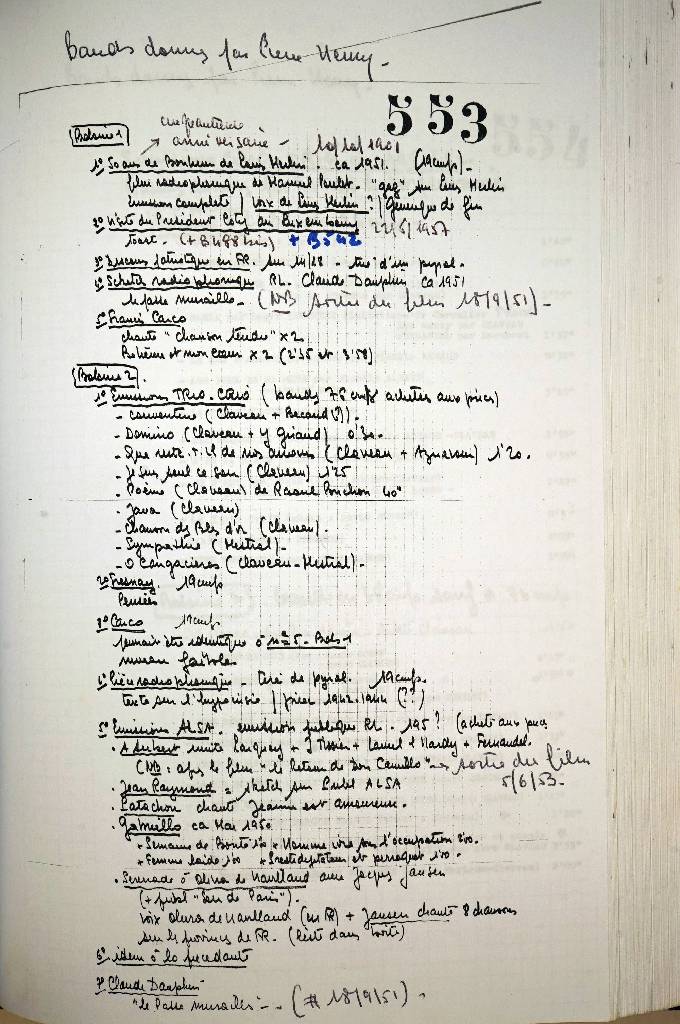 bandes données par Pierre Hemy -
553
Bobine 1
anniversaire - 10/10/1901
1° 50 ans de Bonheur de Louis Merlin. ca 1951. (19 cm/s) -
film radiophonique de Manuel Poulet. "gag" sur Louis Merlin
Emission complète / voix de Louis Merlin ? / Générique de fin
2° Visite du Président Coty au Luxembourg 22/6/1957
toast. (+ B 488 bis) + B542
3° Discours patriotique en FR. sur 14/18 - tiré d'un pyral.
4° Sketch radiophonique RL. Claude Dauphin ca 1951
le passe muraille - (NB sortie du film 18/9/51) -
5° Francis Carco
chante "chanson tendre" x 2
Bohème et mon cœur x 2 (2'35 et 3'58)
Bobine 2.
1° Emissions TRIO. (bandes 76 cm/s achetées aux puces)
- (Claveau + Bécaud (?)).
- Domino (Claveau + Y Giraud) 0'30.
- Que reste-t-il de nos amours (Claveau + Aznavour) 1'20.
- Je suis seul ce soir (Claveau) 1'25
- Poème (Claveau) de Raoul Ponchon 40"
- Java (Claveau)
- Chanson des Blés d'or (Claveau).
- Sympathie (Mestral) -
- O Cangaceiros (Claveau - Mestral) -
2° Fresnay 19 cm/s
Pensées
3° Carco 19 cm/s
pourrait être identique à n° 5 - Bob. 1
niveau faible
4° Pièce radiophonique - tiré de pyral. 19 cm/s.
texte sur l'hypocrisie / 1942.1944 (??)
5° Emissions ALSA. émission publique RL. 195? (acheté aux puces
. A Aubert imite Larquey + J Tissier + Laurel & Hardy + Fernandel.
(NB : après le film "le retour de Don Camillo" -> sortie du film
5/6/53 -
. Jean Raymond = sketch sur Publ ALSA
. Patachou chante Jeanne est amoureuse.
. Gabriello ca Mai 1950
+ Semaine de Bonté 1'00 + Homme sous l'occupation 2'00.
+ Femme laide 1'00 + Prestidigitateur et perroquet 1'30.
. Sérénade à Olivia de Havilland avec Jacques Jansen
(+ publ "Soir de Paris").
voix Olivia de Havilland (en FR) + Jansen chante 8 chansons
sur les provinces de FR. (liste dans boîte)
6° idem à la précédente
7° Claude Dauphin
"le Passe muraille" - (# 18/9/51).